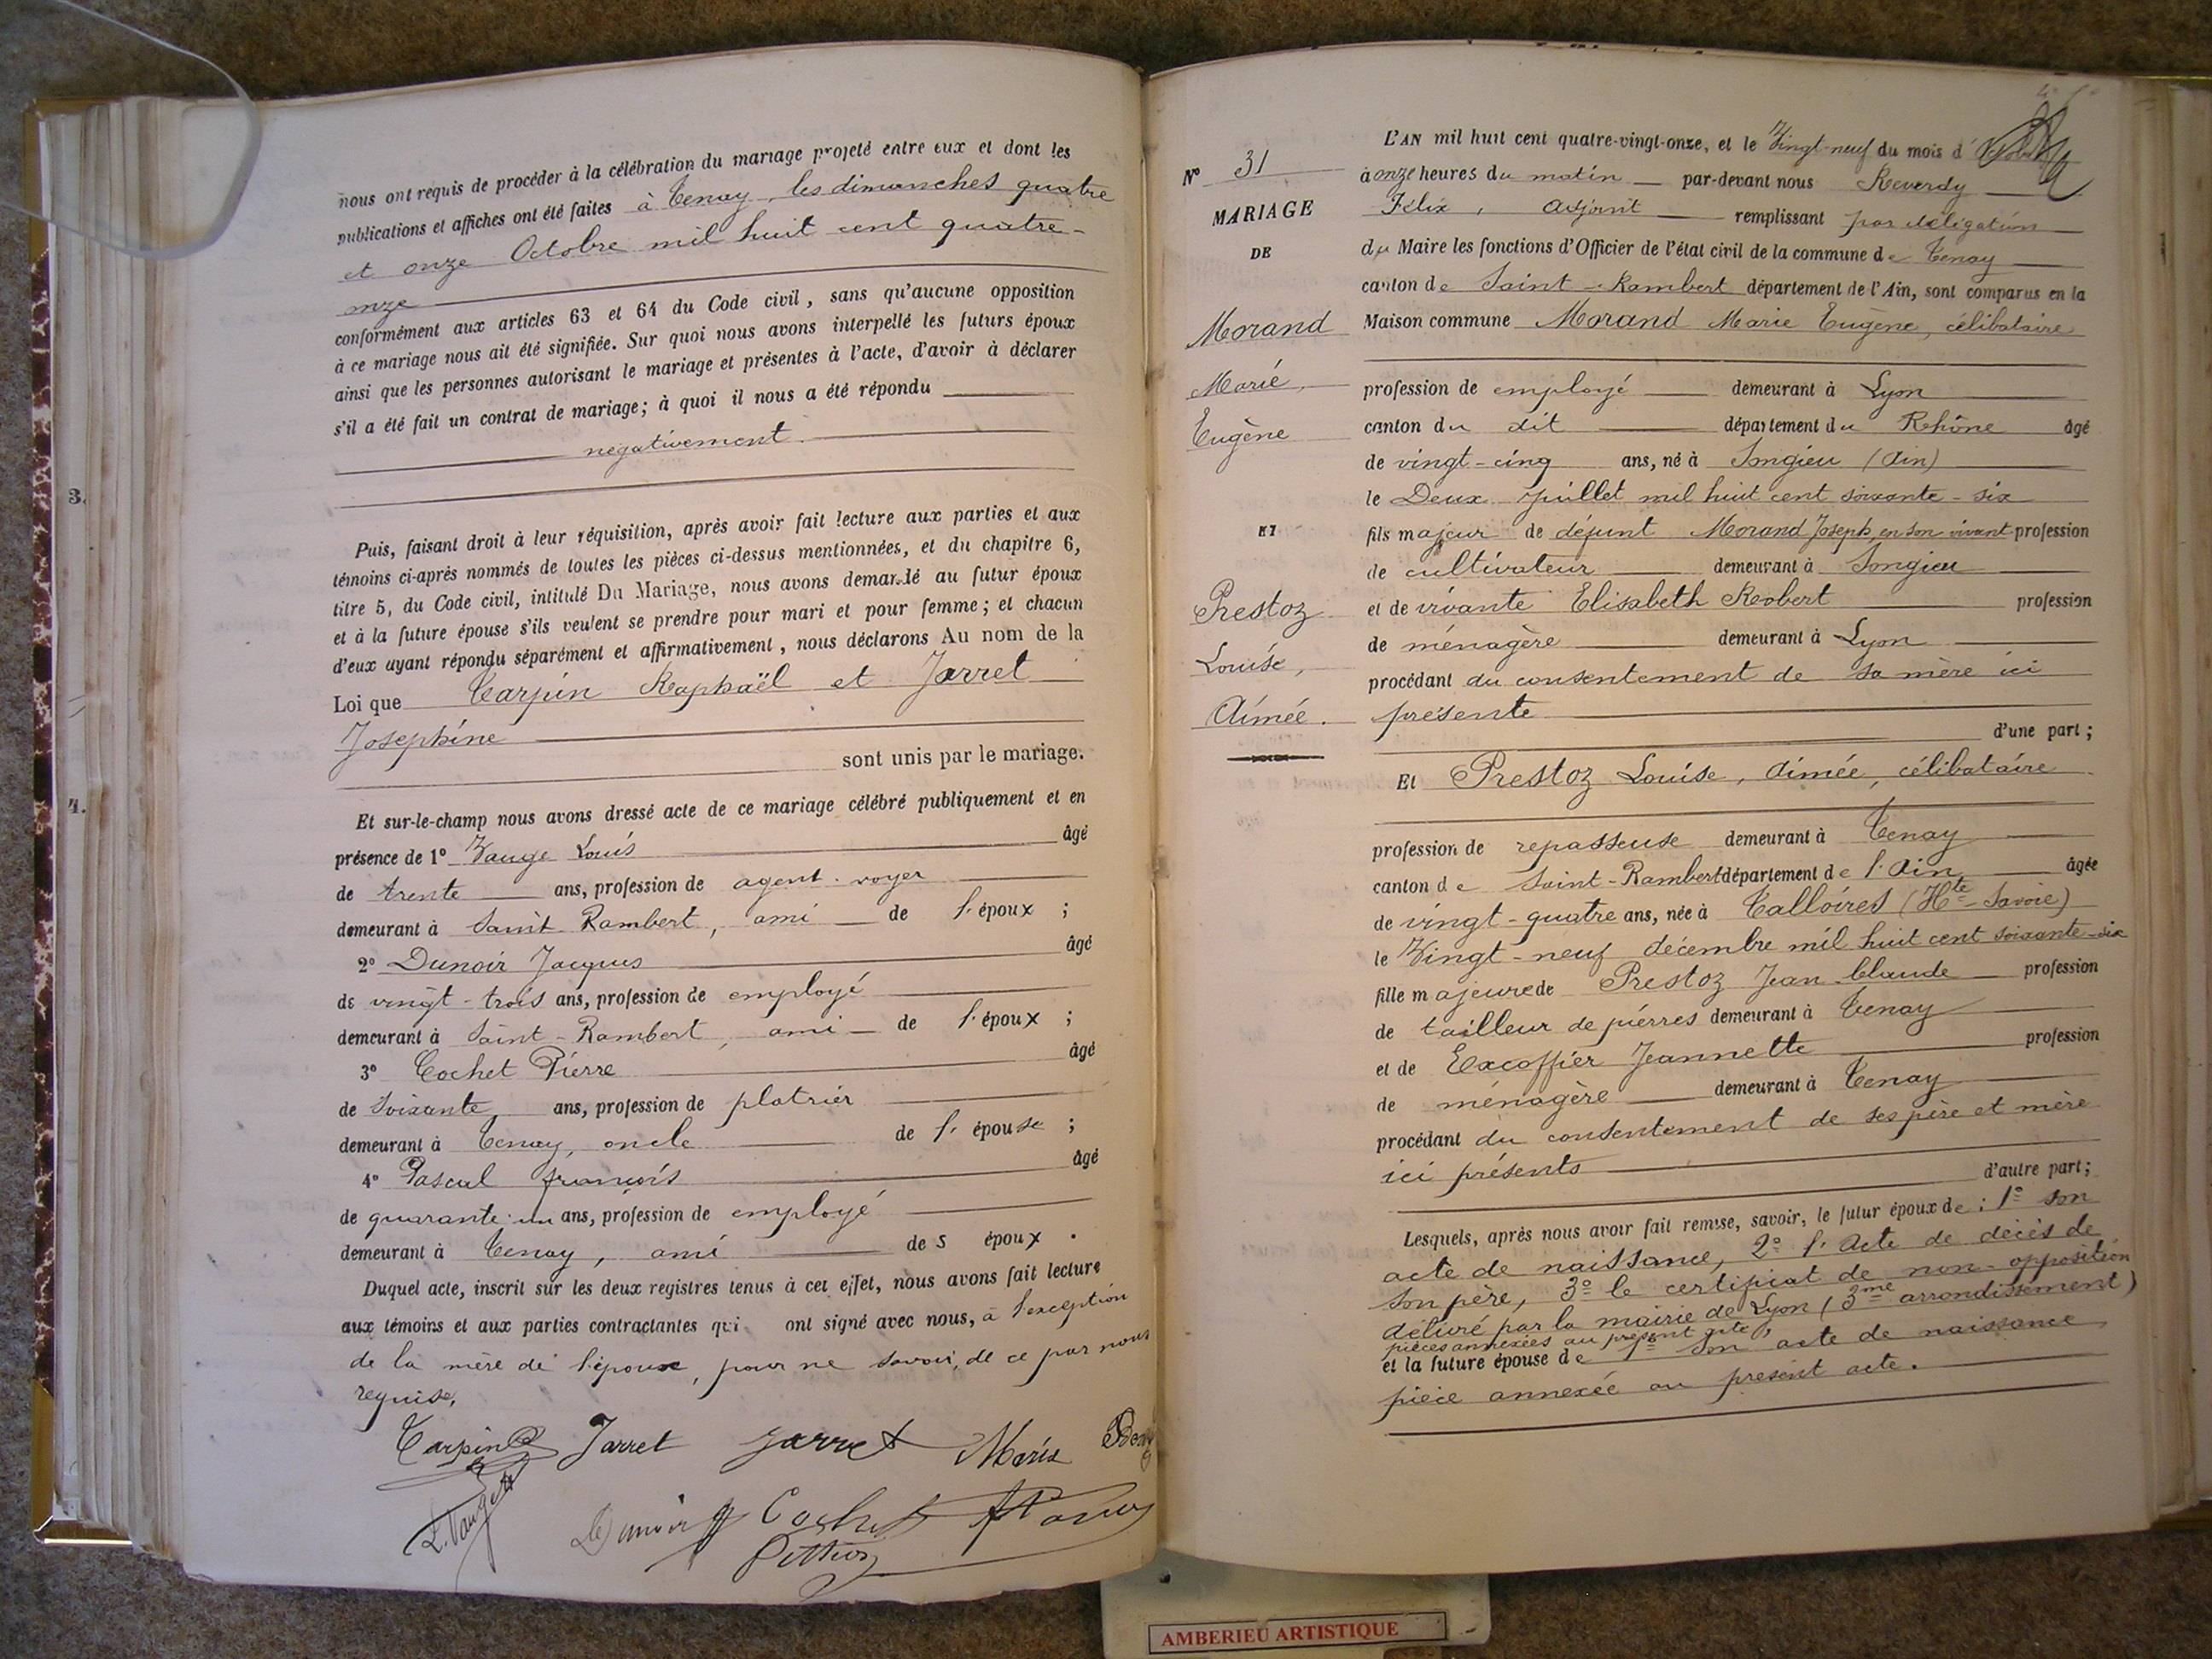 nous ont requis de procéder à la célébration du mariage projeté entre eux et dont les
publications et affiches ont été faites à Tenay, les dimanches quatre
et onze Octobre mil huit cent quatre-
onze
conformément aux articles 63 et 64 du Code civil, sans qu'aucune opposition
à ce mariage nous ait été signifiée. Sur quoi nous avons interpellé les futurs époux
ainsi que les personnes autorisant le mariage et présentes à l'acte, d'avoir à déclarer
s'il a été fait un contrat de mariage; à quoi il nous a été répondu
négativement.
3.
Puis, faisant droit à leur réquisition, après avoir fait lecture aux parties et aux
témoins ci-après nommés de toutes les pièces ci-dessus mentionnées, et du chapitre 6,
titre 5, du Code civil, intitulé Du Mariage, nous avons demandé au futur époux
et à la future épouse s'ils veulent se prendre pour mari et pour femme; et chacun
d'eux ayant répondu séparément et affirmativement, nous déclarons Au nom de la
Loi que Carpin Raphaël et Jarret
Josephine
sont unis par le mariage.
4.
Et sur-le-champ nous avons dressé acte de ce mariage célébré publiquement et en
présence de 1° Vauge Louis âgé
de trente ans, profession de agent-voyer
demeurant à Saint Rambert, ami de l'époux ;
2° Dunoir Jacques âgé
de vingt-trois ans, profession de employé
demeurant à Saint-Rambert, ami de l'époux ;
3° Cochet Pierre âgé
de soixante ans, profession de platrier
demeurant à Tenay, oncle de l'épouse ;
4° Pascal françois âgé
de quarante-un ans, profession de employé
demeurant à Tenay, ami de s époux .
Duquel acte, inscrit sur les deux registres tenus à cet effet, nous avons fait lecture
aux témoins et aux parties contractantes qui ont signé avec nous, à l'exception
de la mère de l'époux, pour ne savoir, de ce par nous
requise.
Carpin R Jarret Jarret Marie
L. Vauge Dunoir Cochet
N° 31
MARIAGE
DE
Morand
Marie,
Eugène
ET
Prestoz
Louise,
Aimée.
L'AN mil huit cent quatre-vingt-onze, et le Vingt-neuf du mois d'Octobre
à onze heures du matin par-devant nous Reverdy
Félix, adjoint remplissant par délégation
du Maire les fonctions d'Officier de l'état civil de la commune de Tenay
canton de Saint-Rambert département de l'Ain, sont comparus en la
Maison commune Morand Marie Eugène, célibataire
profession de employé demeurant à Lyon
canton du dit département du Rhône âgé
de vingt-cinq ans, né à Songieu (Ain)
le Deux juillet mil huit cent soixante-six
fils majeur de défunt Morand Joseph, en son vivant profession
de cultivateur demeurant à Songieu
et de vivante Elisabeth Robert profession
de ménagère demeurant à Lyon
procédant du consentement de sa mère ici
présente
d'une part;
Et Prestoz Louise, Aimée, célibataire
profession de repasseuse demeurant à Tenay
canton de Saint-Rambert département de l'Ain âgée
de vingt-quatre ans, née à Talloires (Hte-Savoie)
le Vingt-neuf décembre mil huit cent soixante-six
fille majeure de Prestoz Jean-Claude profession
de tailleur de pierres demeurant à Tenay
et de Excoffier Jeannette profession
de ménagère demeurant à Tenay
procédant du consentement de ses père et mère
ici présents
d'autre part;
Lesquels, après nous avoir fait remise, savoir, le futur époux de : 1° son
acte de naissance, 2° l'acte de décès de
son père, 3° le certificat de non-opposition
délivré par la mairie de Lyon (3me arrondissement)
pièces annexées au présent acte,
et la future épouse de 1° son acte de naissance
pièce annexée au présent acte.
AMBERIEU ARTISTIQUE